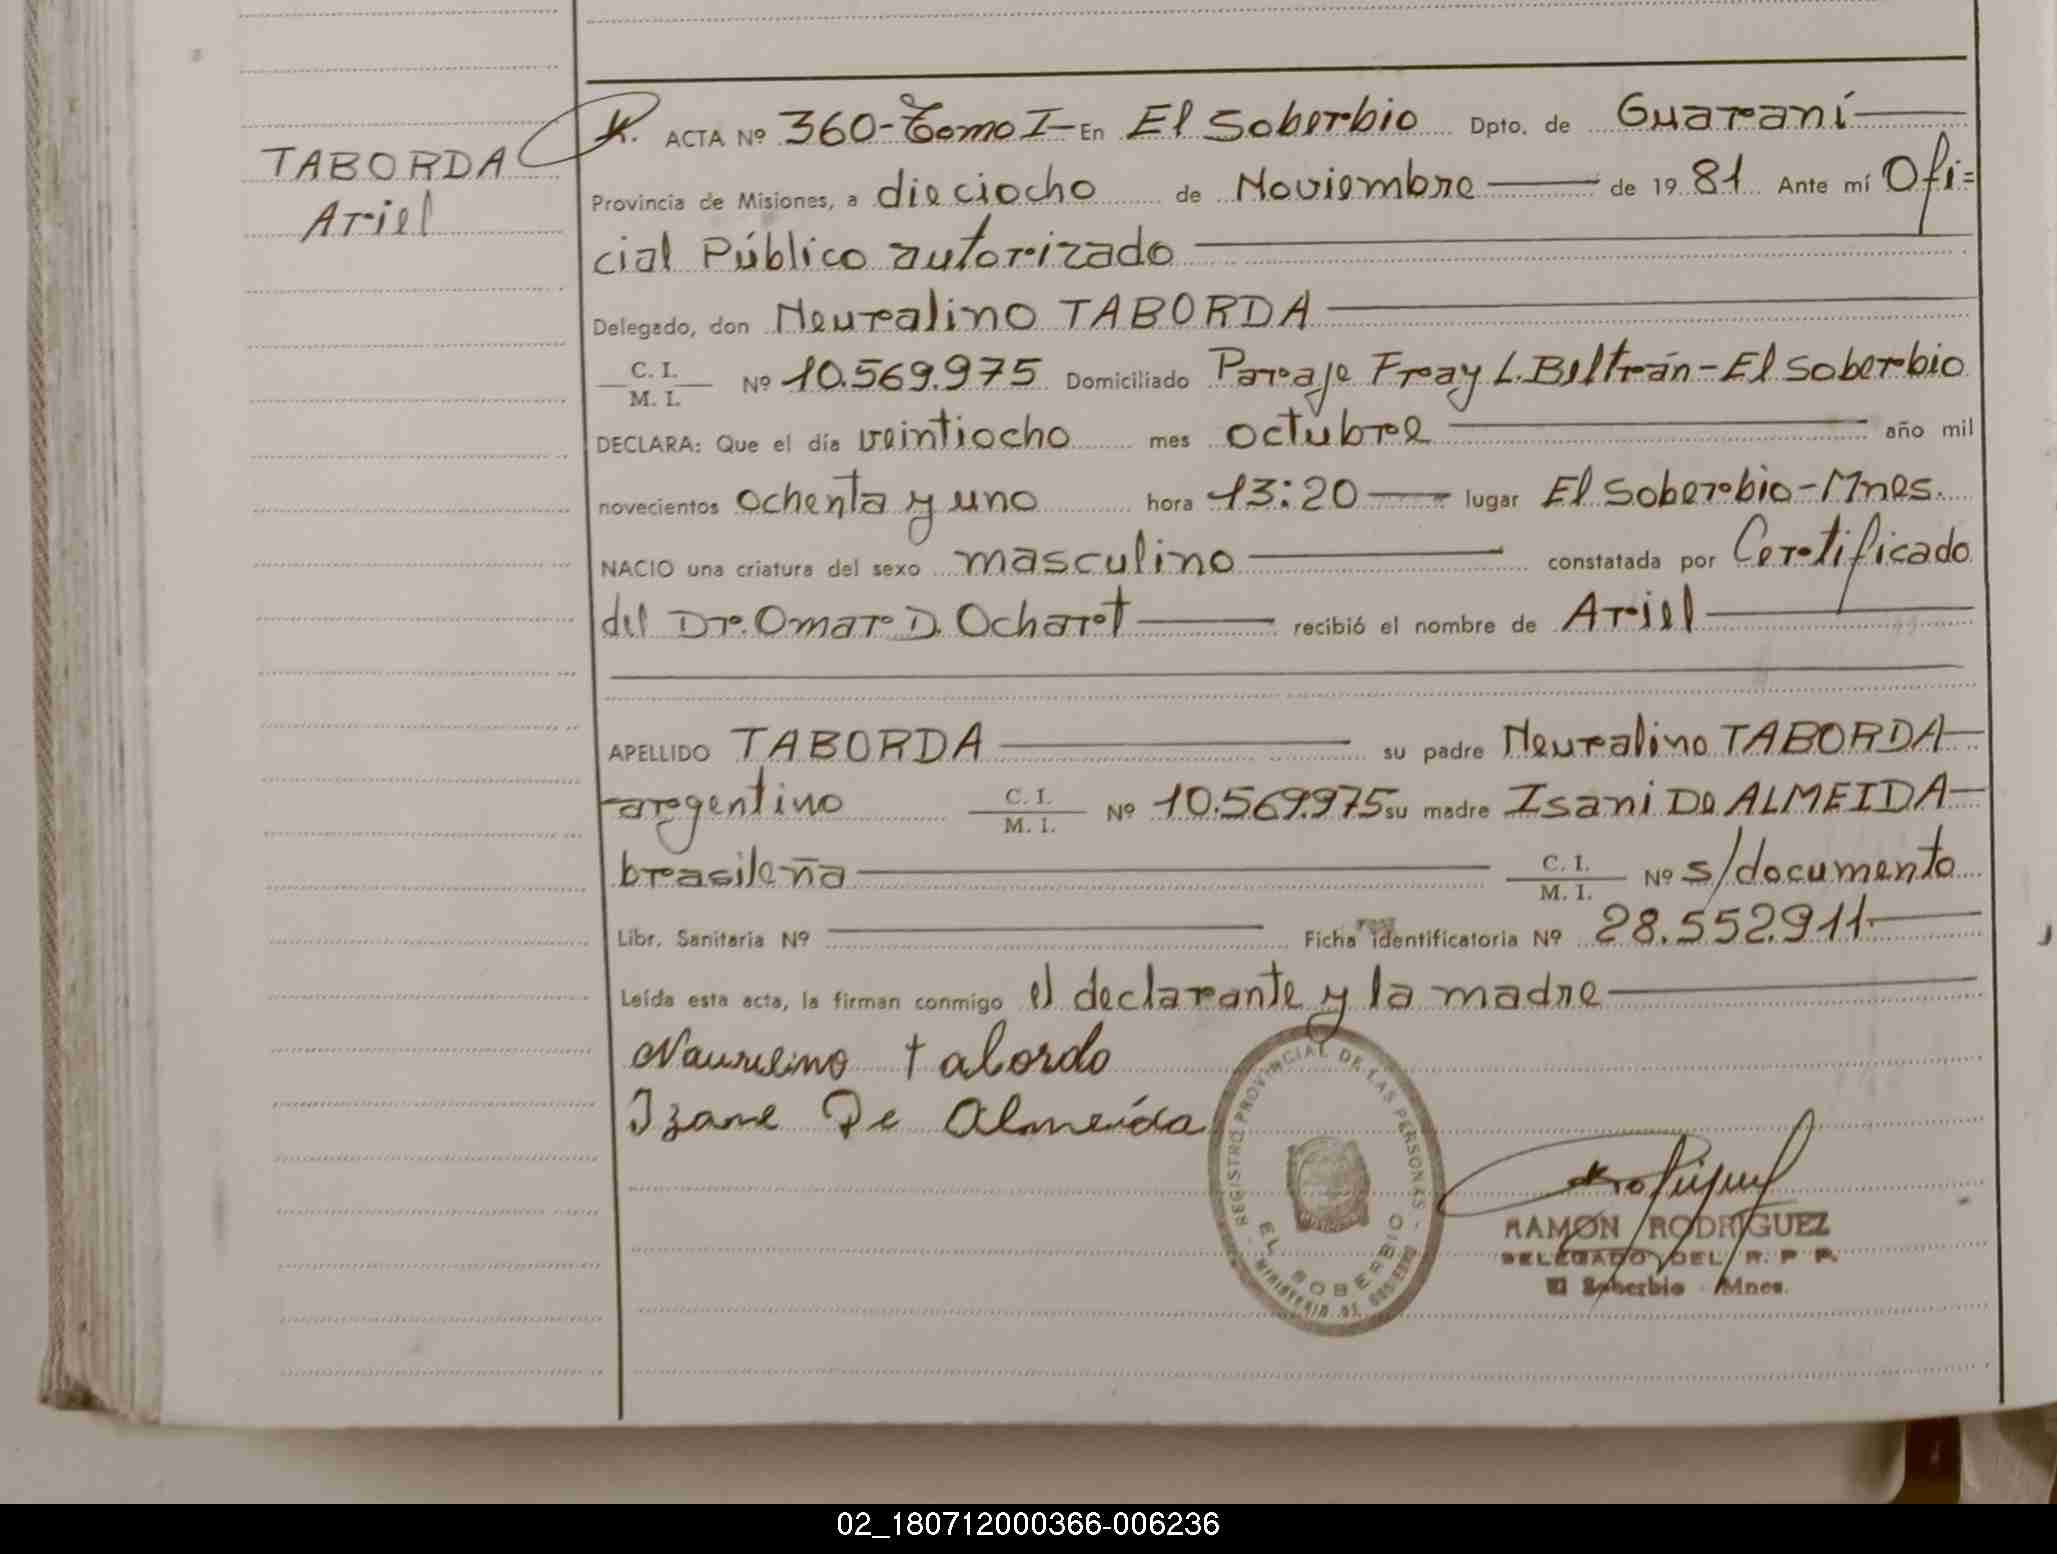 TABORDA
Ariel
ACTA Nº 360-Tomo I En El Soberbio Dpto. de Guaraní
Provincia de Misiones, a dieciocho de Noviembre de 1981 Ante mí Ofi=
cial Público autorizado
Delegado, don Neuralino TABORDA
C. I.
M. I. Nº 10.569.975 Domiciliado Paraje Fray L. Beltrán-El Soberbio
DECLARA: Que el día veintiocho mes octubre año mil
novecientos ochenta y uno hora 13:20 lugar El Soberbio-Mnes.
NACIO una criatura del sexo masculino constatada por Certificado
del Dr. Omar D. Ochart recibió el nombre de Ariel
APELLIDO TABORDA su padre Neuralino TABORDA
argentino C. I.
M. I. Nº 10.569.975 su madre Isani De ALMEIDA
brasileña C. I.
M. I. Nº s/documento
Libr. Sanitaria Nº Ficha identificatoria Nº 28.552.911
Leída esta acta, la firman conmigo el declarante y la madre
Naurelino tabordo
Izane De Almeida
REGISTRO PROVINCIAL DE LAS PERSONAS
EL SOBERBIO
MINISTERIO DE GOBIERNO
RAMON RODRIGUEZ
DELEGADO DEL R. P. P.
El Soberbio Mnes.
02_180712000366-006236